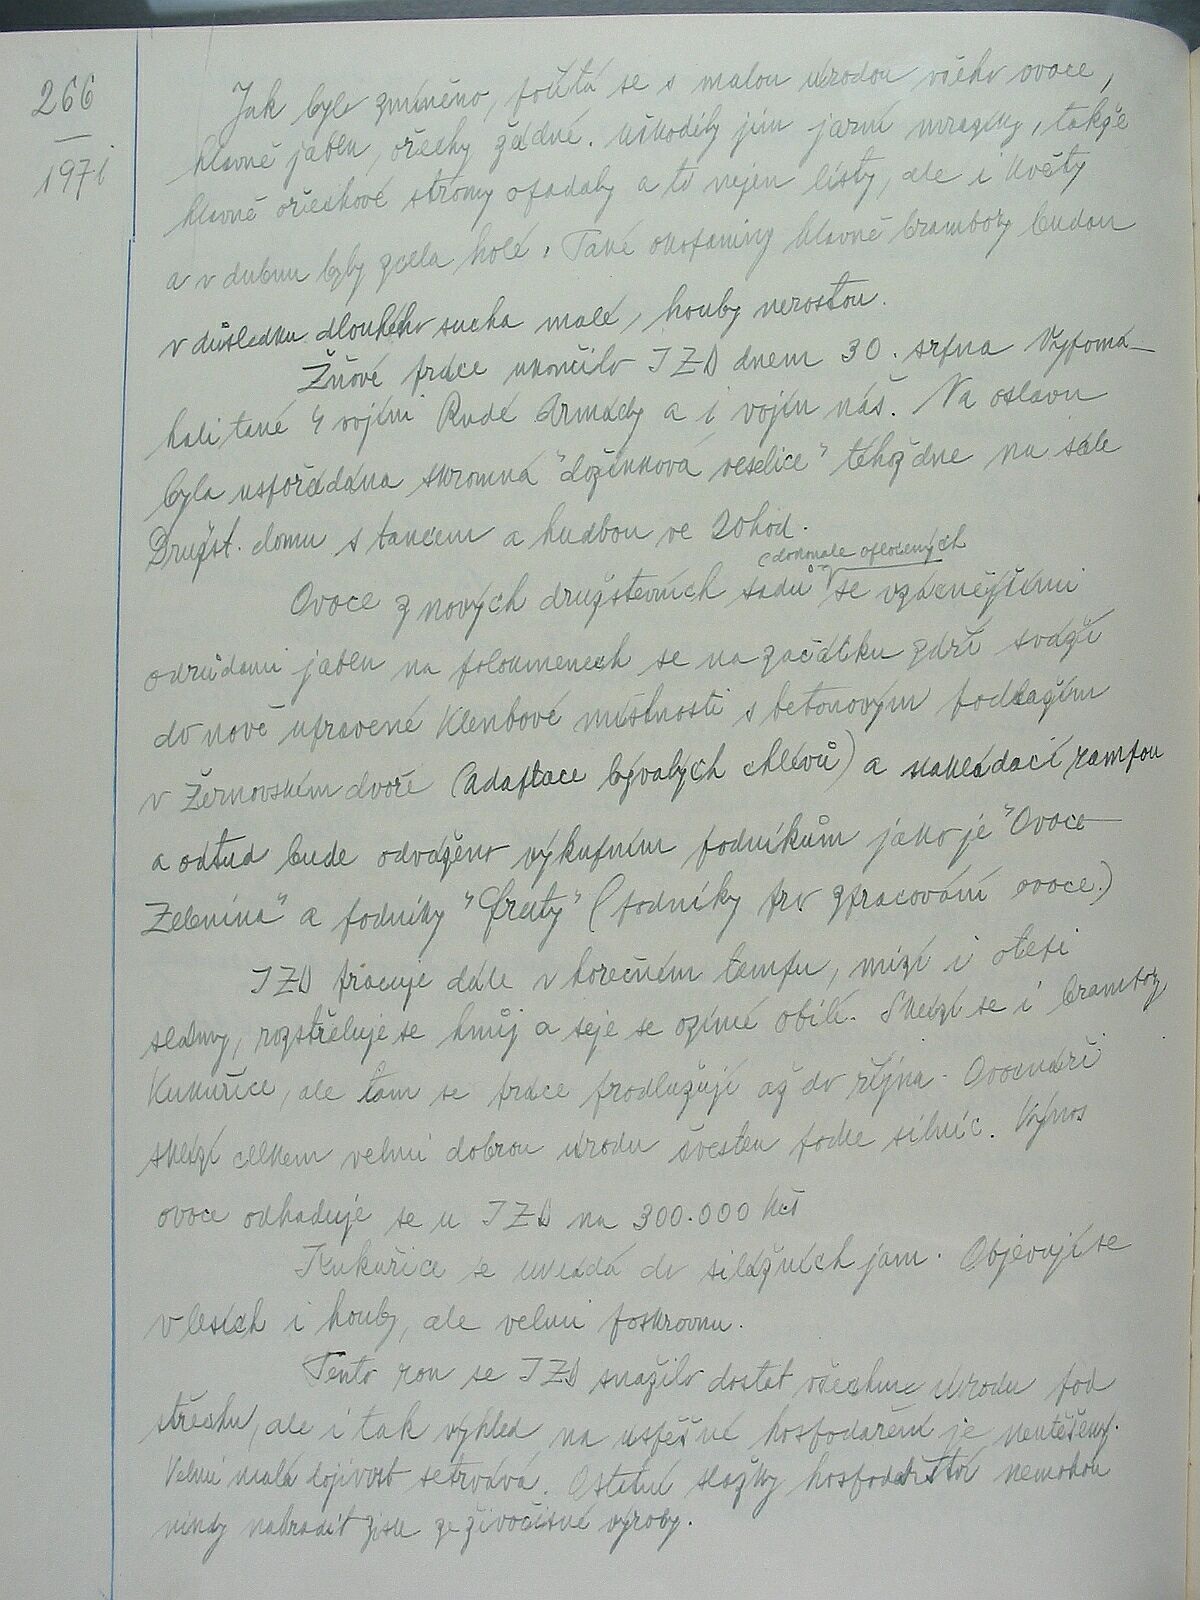 266
1971
Jak bylo zmíněno, počítá se s malou úrodou všeho ovoce,
hlavně jablek, ořechy žádné. Uškodily jim jarní mrazíky, takže
hlavně ořechové stromy opadaly a to nejen listy, ale i květy
a v dubnu byly zcela holé. Také okopaniny hlavně brambory budou
v důsledku dlouhého sucha malé, houby nerostou.
Žňové práce ukončilo JZD dnem 30. srpna. Vypomá-
hali také 4 vojíni Rudé Armády a i vojín náš. Na oslavu
byla uspořádána skromná "dožínková veselice" téhož dne na sále
Družst. domu s tancem a hudbou ve 20hod.
(dokonale oplocených
Ovoce z nových družstevních sadů se vzácnějšími
odrůdami jablek na polokmenech se na začátku září sváží
do nově upravené klenbové místnosti s betonovým podlažím
v Žernovském dvoře (adaptace bývalých chlévů) a nakládací rampou
a odtud bude odváženo výkupním podnikům jako je "Ovoce-
Zelenina" a podniky "Fruty" (podniky pro zpracování ovoce.)
JZD pracuje dále v horečném tempu, mizí i otepi
slámy, rozstřeluje se hnůj a seje se ozimé obilí. Sklízí se i brambory
Kukuřice, ale tam se práce prodlužují až do října. Ovocnáři
sklízí celkem velmi dobrou úrodu švestek podle silnic. Výnos
ovoce odhaduje se u JZD na 300.000 Kčs
Kukuřice se ukládá do silážních jam. Objevují se
v lesích i houby, ale velmi poskrovnu.
Tento rok se JZD snažilo dostat všechnu úrodu pod
střechu, ale i tak výhled na úspěšné hospodaření je neutěšený.
Velmi malá dojivost setrvává. Ostatní složky hospodářství nemohou
nikdy nahradit zisk ze živočišné výroby.